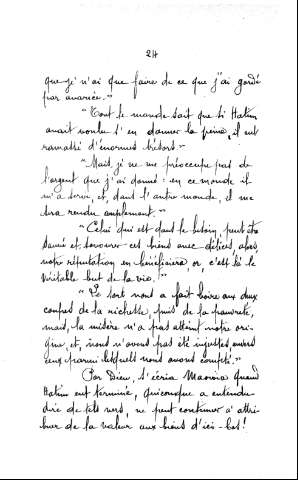 24
que je n'ai que faire de ce que j'ai gardé
par avarice."
"Tout le monde sait que si Hatim
avait voulu s'en donner la peine, il eut
ramassé d'énormes trésors."
"Mais, je ne me préoccupe pas de
l'argent que j'ai donné: en ce monde il
m'a servi, et, dans l'autre monde, il me
sera rendu amplement."
"Celui qui est dans le besoin, peut être
sauvé et savourer ces biens avec délices, alors,
notre réputation en bénéficiera, or, c'est là le
véritable but de la vie."
"Le sort nous a fait boire aux deux
coupes de la richesse, puis de la pauvreté,
mais, la misère n'a pas atteint notre ori-
gine, et, nous n'avons pas été injustes envers
ceux parmi lesquels nous avons compté."
Par Dieu, s'écria Maovia quand
Hatim eut terminé, quiconque a entendu
dire de tels vers, ne peut continuer à attri-
buer de la valeur aux biens d'ici-bas!